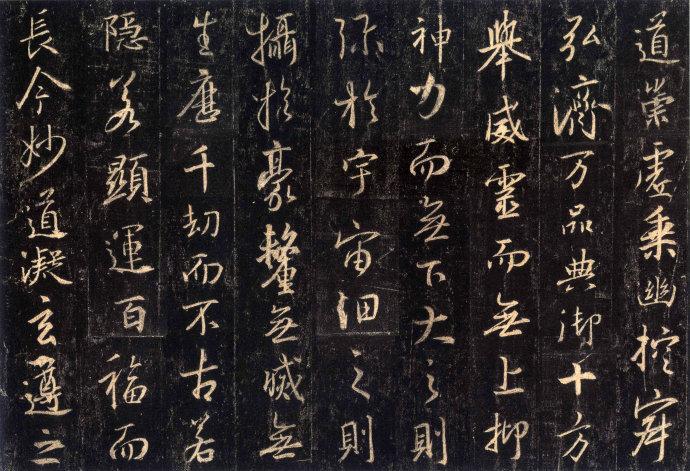 道崇虛乗幽控寂
弘濟万品典御十方
舉威靈而無上抑
神力而無下大之則
弥於宇宙細之則
攝於豪釐無滅無
生歷千劫而不古若
隱若顯運百福而
長今妙道凝玄遵之